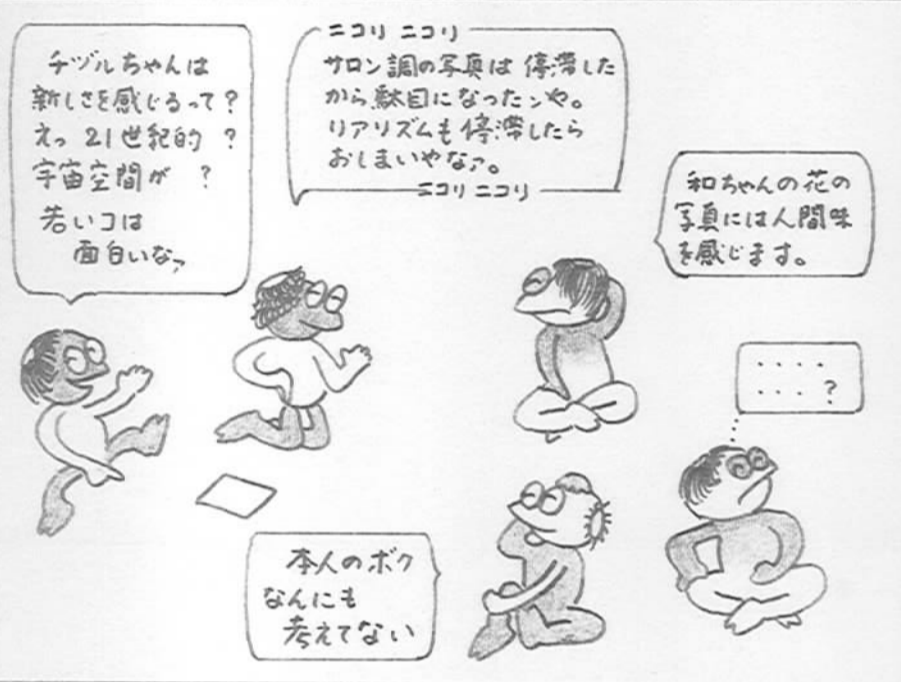 チヅルちゃんは
新しさを感じるって？
えっ 21世紀的 ？
宇宙空間が ？
若いコは
面白いなァ
ニコリ ニコリ
サロン調の写真は 停滞した
から駄目になったンや。
リアリズムも 停滞したら
おしまいやなァ。
ニコリ ニコリ
和ちゃんの花の
写真には人間味
を感じます。
・・・・
・・・？
本人のボク
なんにも
考えてない